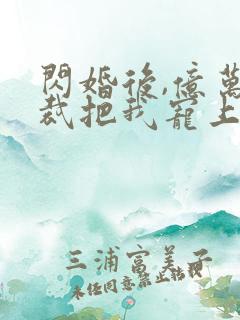 閃婚後,億萬
裁把我寵上
三浦富美子
未任同意禁止轉載